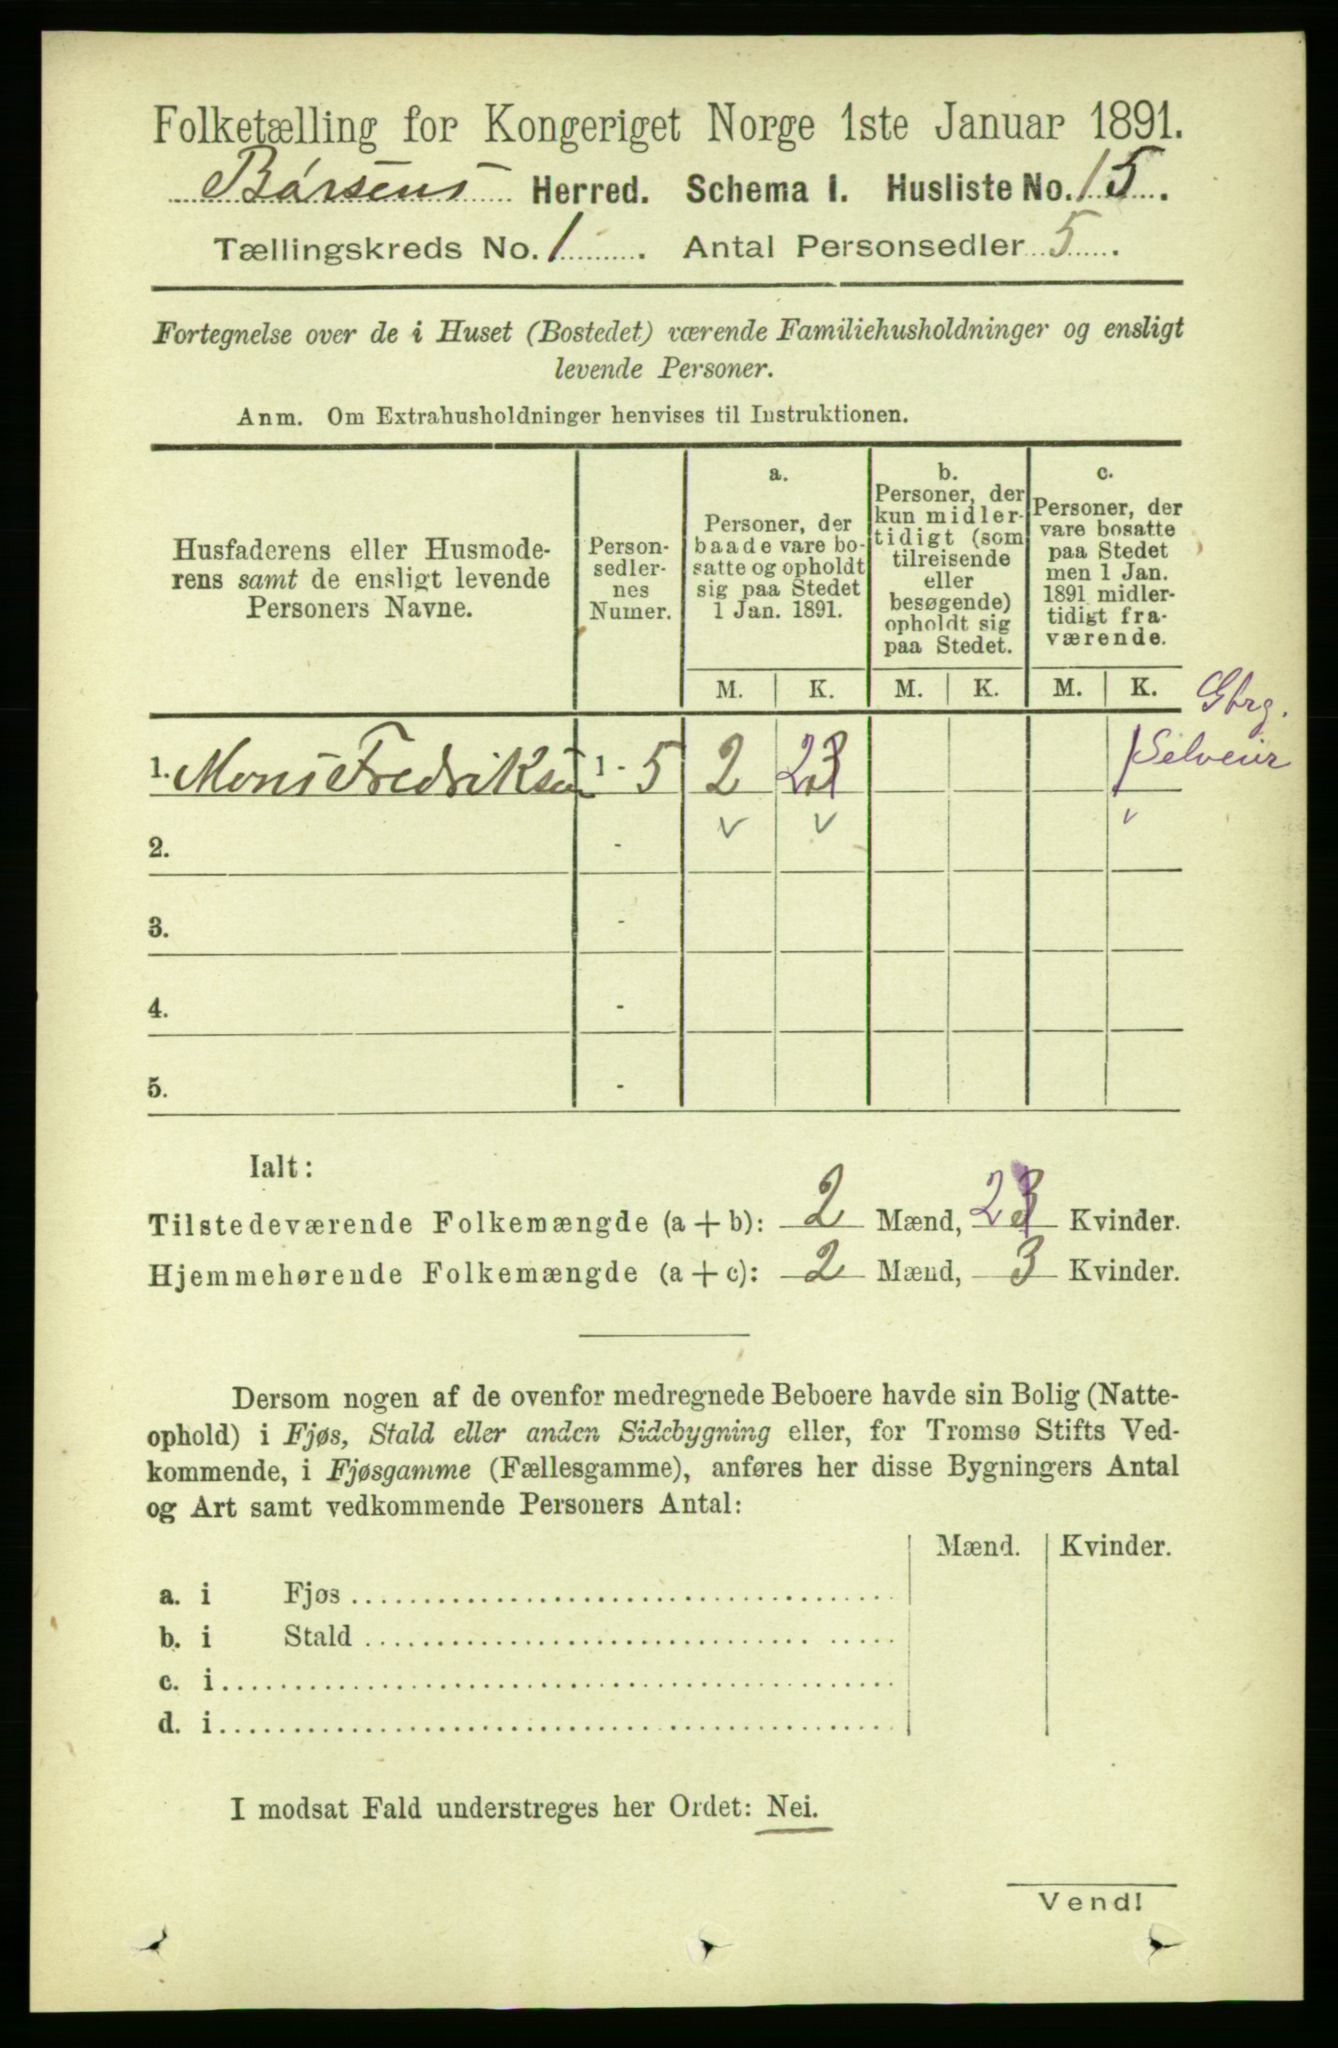 Folketælling for Kongeriget Norge 1ste Januar 1891.
Børsens Herred. Schema 1. Husliste No. 15.
Tællingskreds No. 1. Antal Personsedler 5.
Fortegnelse over de i Huset (Bostedet) værende Familiehusholdninger og ensligt
levende Personer.
Anm. Om Extrahusholdninger henvises til Instruktionen.
Husfaderens eller Husmode-
rens samt de ensligt levende
Personers Navne.
Person-
sedler-
nes
Numer.
a.
Personer, der
baade vare bo-
satte og opholdt
sig paa Stedet
1 Jan. 1891.
b.
Personer, der
kun midler-
tidigt (som
tilreisende
eller
besøgende)
opholdt sig
paa Stedet.
c.
Personer, der
vare bosatte
paa Stedet
men 1 Jan.
1891 midler-
tidigt fra-
værende.
M. K. M. K. M. K.
Gbrg.
1. Mons Fredriksen 1 - 5 2 23 1 Selveier
v v v
2. -
3. -
4. -
5. -
Ialt:
Tilstedeværende Folkemængde (a + b): 2 Mænd, 23 Kvinder.
Hjemmehørende Folkemængde (a + c): 2 Mænd, 3 Kvinder.
Dersom nogen af de ovenfor medregnede Beboere havde sin Bolig (Natte-
ophold) i Fjøs, Stald eller anden Sidebygning eller, for Tromsø Stifts Ved-
kommende, i Fjøsgamme (Fællesgamme), anføres her disse Bygningers Antal
og Art samt vedkommende Personers Antal:
Mænd. Kvinder.
a. i Fjøs
b. i Stald
c. i
d. i
I modsat Fald understreges her Ordet: Nei.
Vend!